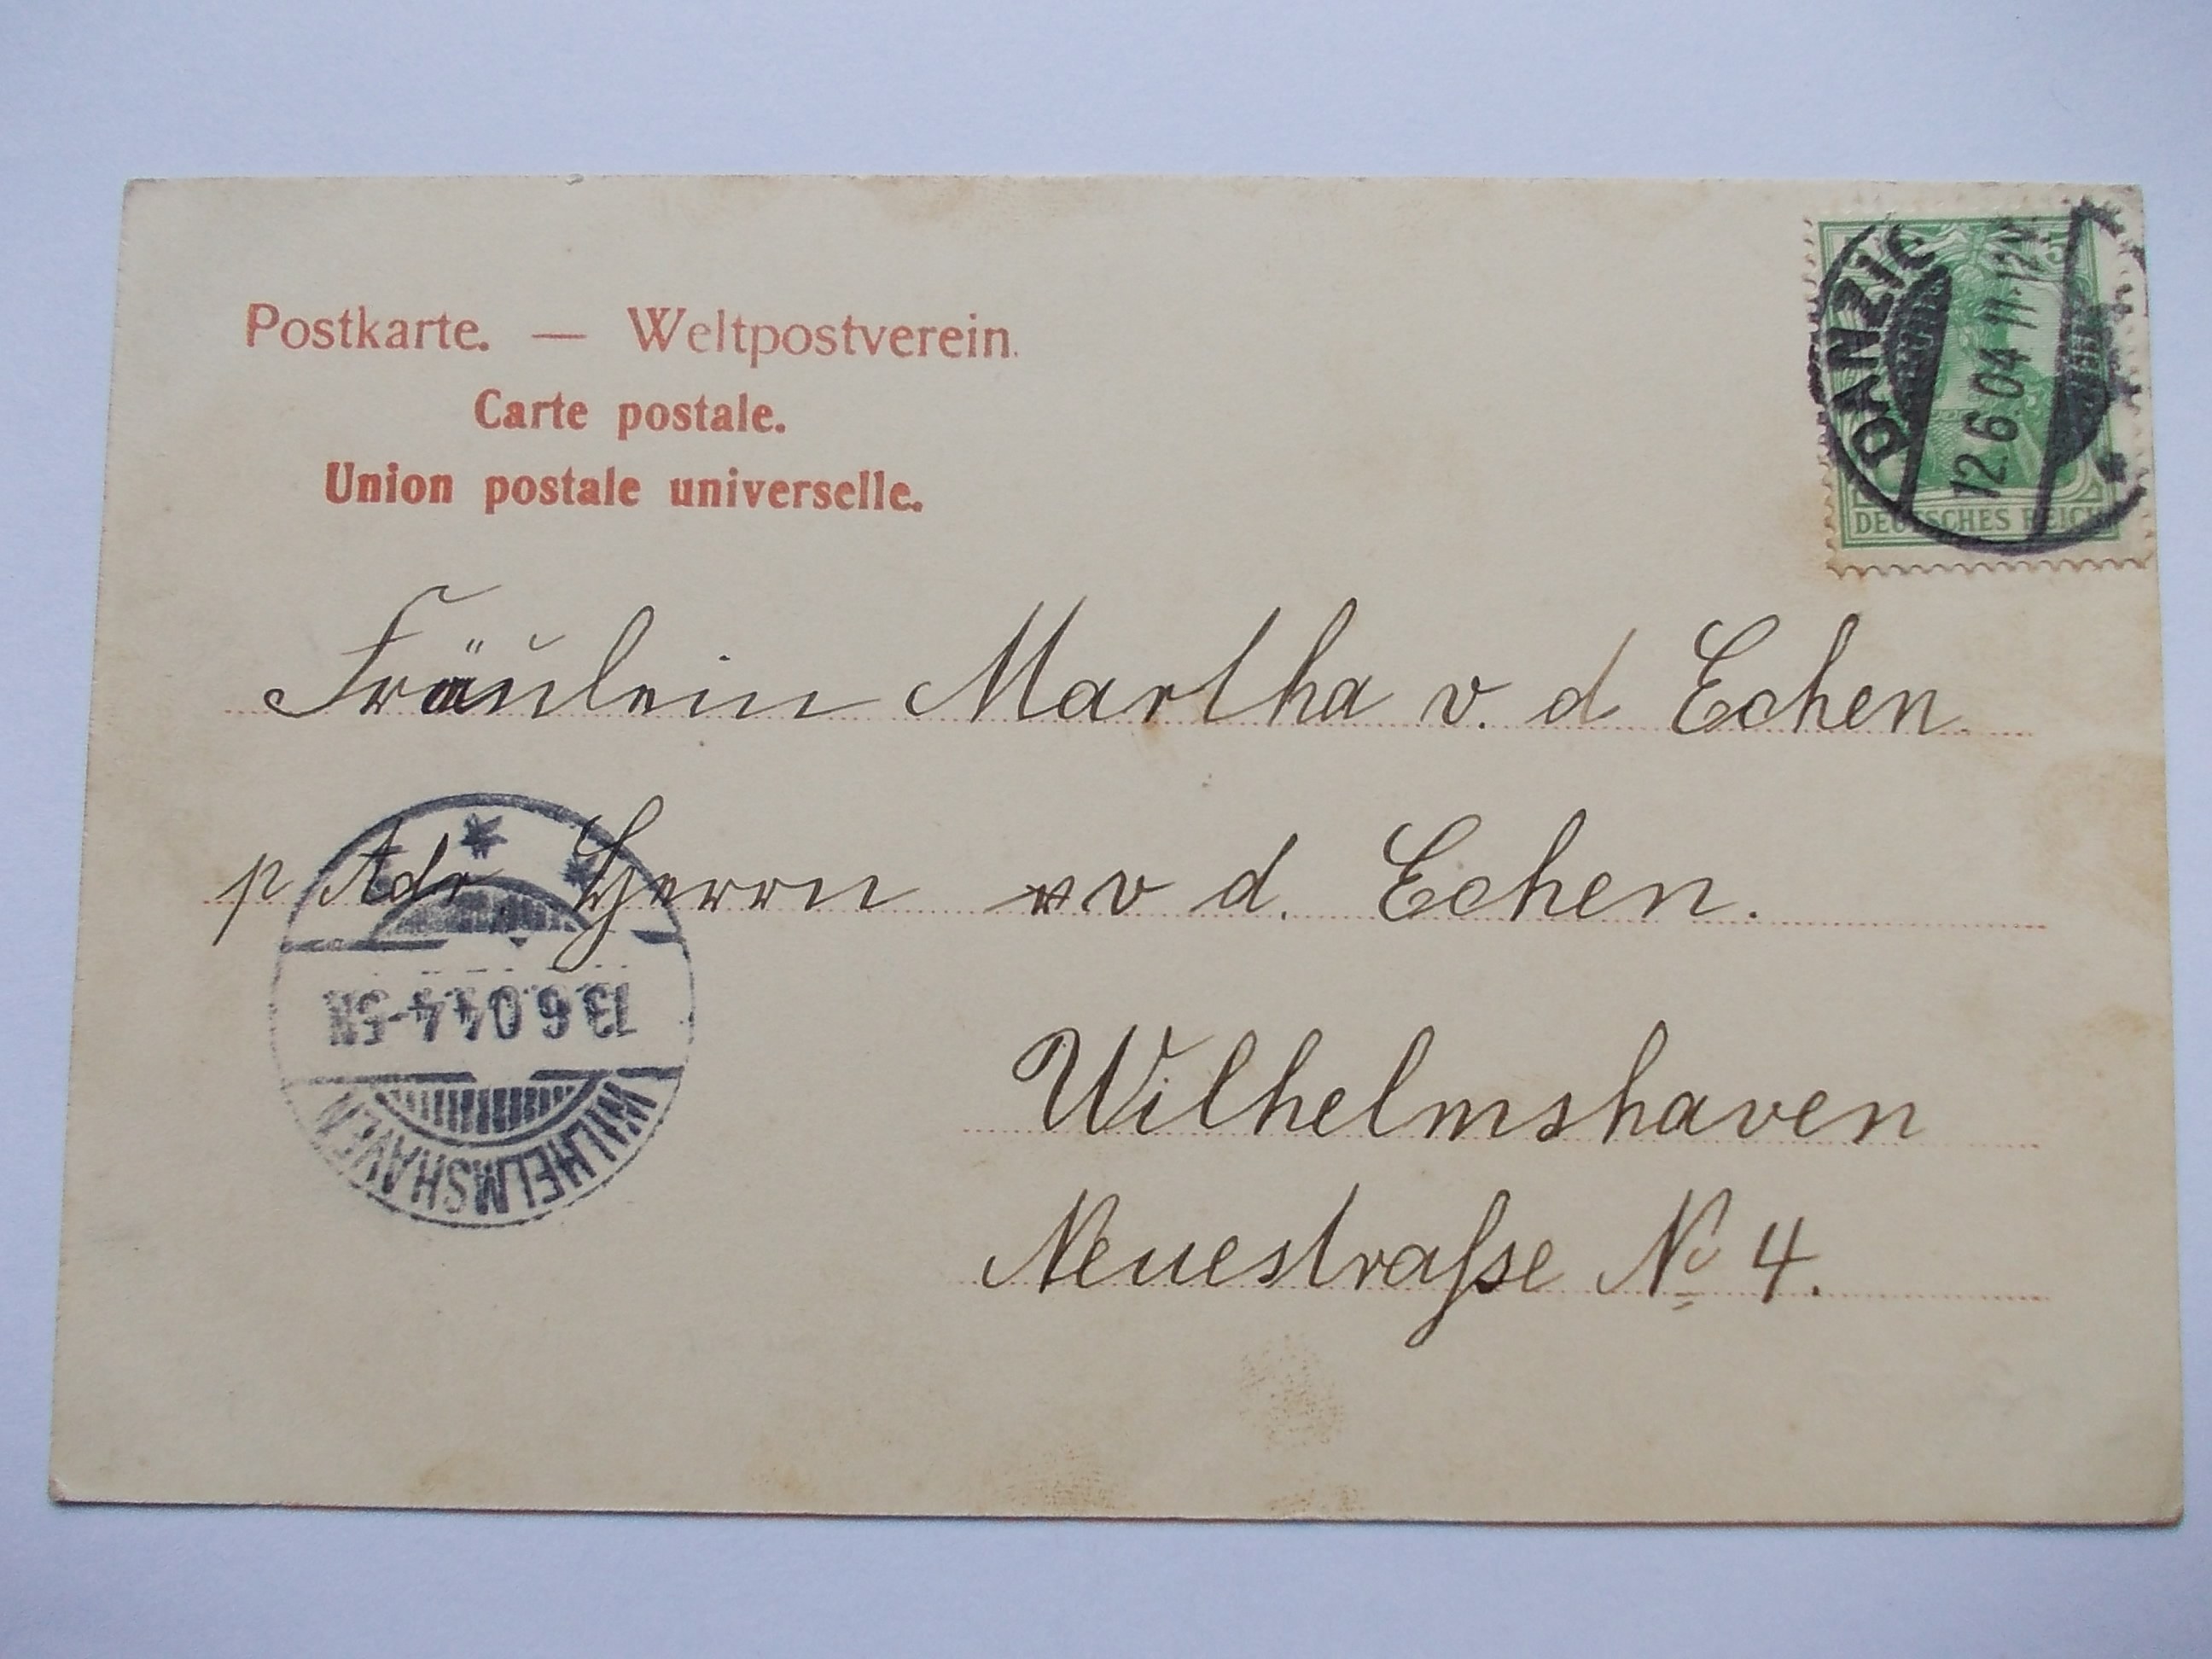 Postkarte. — Weltpostverein.
Carte postale.
Union postale universelle.
DANZIG
12.6.04 11-12V.
DEUTSCHES REICH
Fräulein Martha v. d Echen.
p Adr Herrn v d. Echen.
13.6.04.4-5N
WILHELMSHAVEN
Wilhelmshaven
Neuestraſse No 4.